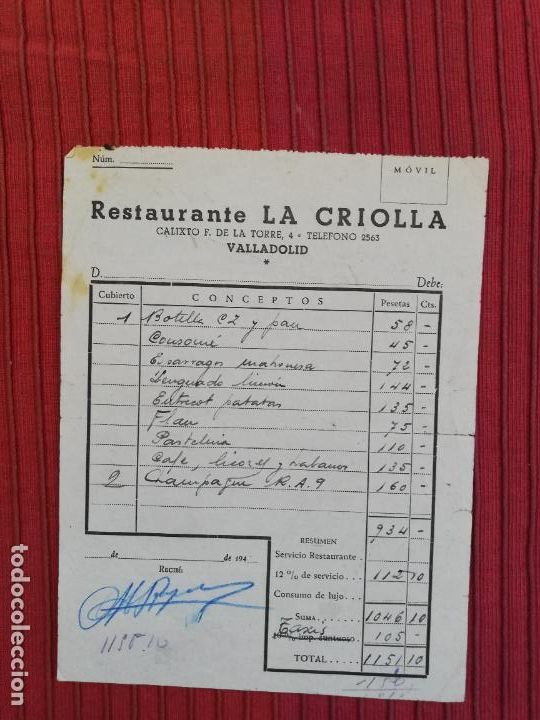 Núm.
MÓVIL
Restaurante LA CRIOLLA
CALIXTO F. DE LA TORRE, 4 - TELEFONO 2563
VALLADOLID
*
D. Debe:
Cubierto CONCEPTOS Pesetas Cts.
1 Botella CZ y pan 58 -
Consomé 45 -
Esparragos mahonesa 72 -
Lenguado limón 144 -
Entrecot patatas 135 -
Flan 75 -
Pasteleria 110 -
Cafe, licores y habanos 135 -
2 Champagne R.A.9 160 -
934 -
RESUMEN
Servicio Restaurante
de de 194
RECIBÍ
12 % de servicio... 112 10
Consumo de lujo...
SUMA 1046 10
Taxis 105 -
TOTAL 1151 10
1195.10
todocoleccion